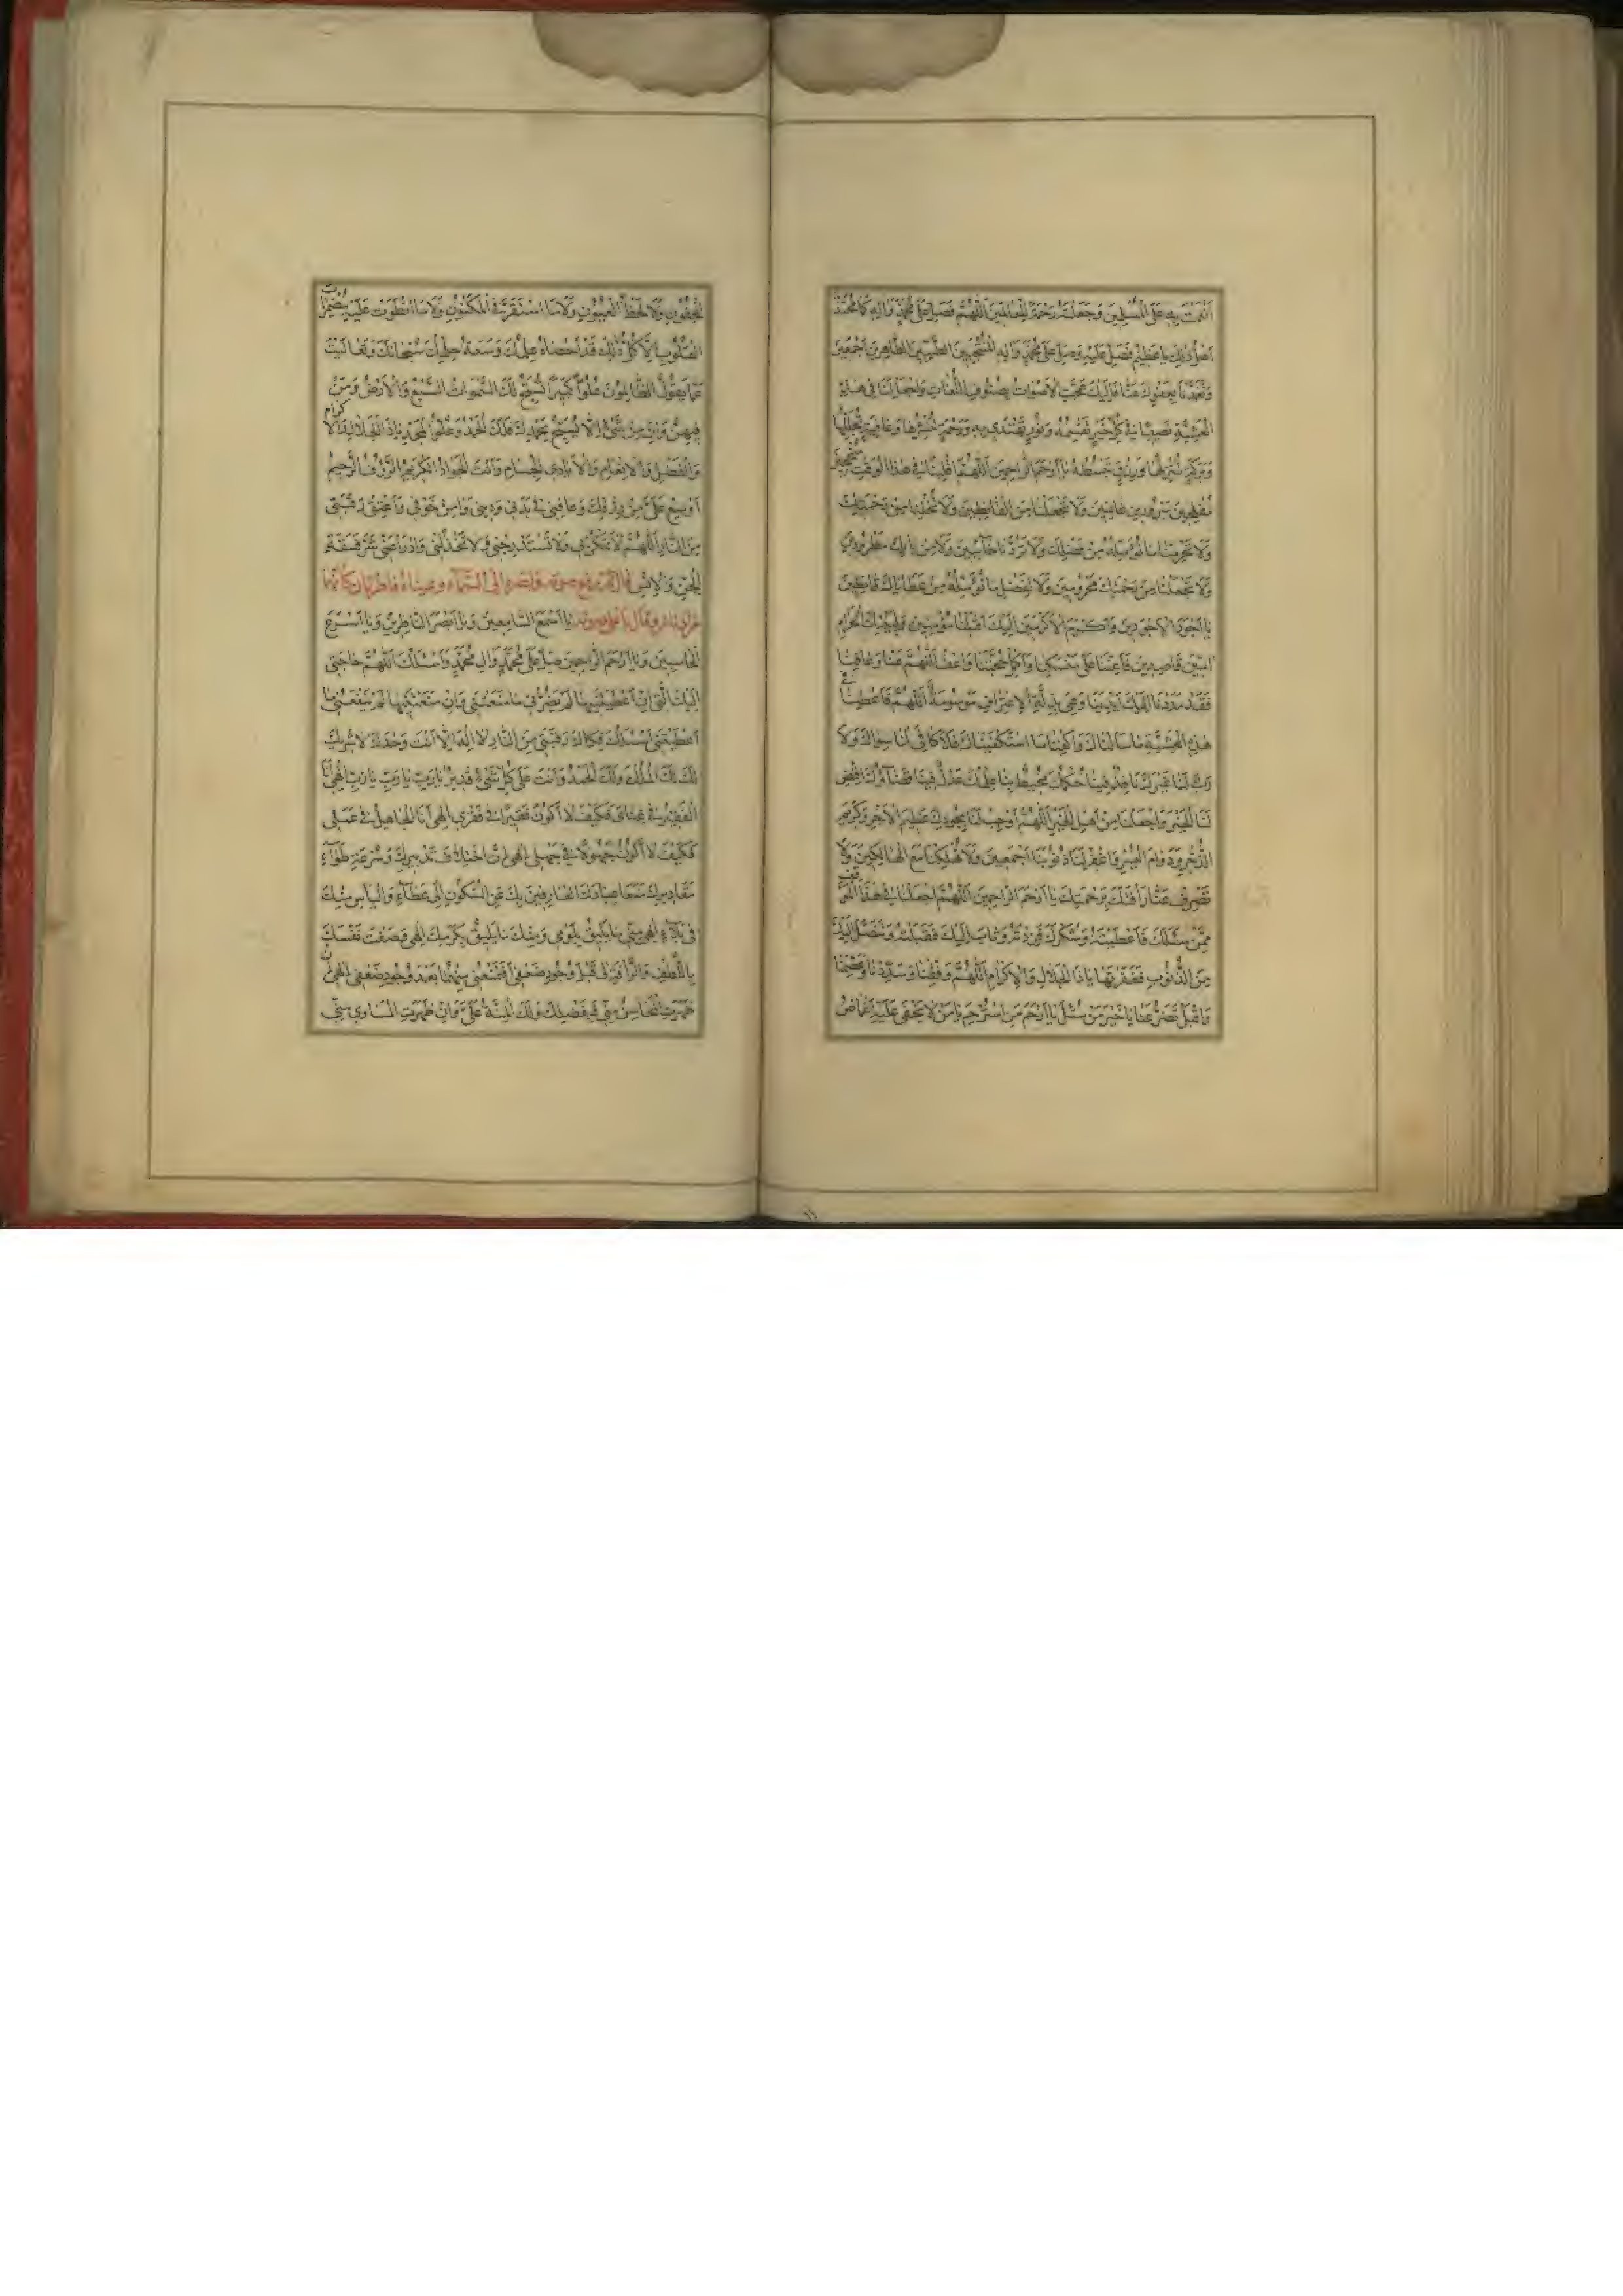 اَنْعَمْتَ بِهِ عَلَى الْمُسْلِمِينَ وَجَعَلْتَهُ رَحْمَةً لِلْعَالَمِينَ اَللّٰهُمَّ فَصَلِّ عَلَى مُحَمَّدٍ وَآلِهِ كَمَا مُحَمَّدٌ
اَهْلٌ لِذٰلِكَ يَا عَظِيمُ فَصَلِّ عَلَيْهِ وَصَلِّ عَلَى مُحَمَّدٍ وَآلِهِ الْمُنْتَجَبِينَ الطَّيِّبِينَ الطَّاهِرِينَ اَجْمَعِينَ
وَتَغَمَّدْنَا بِعَفْوِكَ عَنَّا فَاِلَيْكَ عَجَّتِ الْاَصْوَاتُ بِصُنُوفِ اللُّغَاتِ وَاجْعَلْ لَنَا فِي هٰذِهِ
الْعَشِيَّةِ نَصِيبًا فِي كُلِّ خَيْرٍ تَقْسِمُهُ وَنُورٍ تَهْتَدِي بِهِ وَرَحْمَةٍ تَنْشُرُهَا وَعَافِيَةٍ تُجَلِّلُهَا
وَبَرَكَةٍ تُنْزِلُهَا وَرِزْقٍ تَبْسُطُهُ يَا اَرْحَمَ الرَّاحِمِينَ اَللّٰهُمَّ اقْلِبْنَا فِي هٰذَا الْوَقْتِ مُنْجِحِينَ
مُفْلِحِينَ مَبْرُورِينَ غَانِمِينَ وَلَا تَجْعَلْنَا مِنَ الْقَانِطِينَ وَلَا تُخْلِنَا مِنْ رَحْمَتِكَ
وَلَا تَحْرِمْنَا مَا نُؤَمِّلُهُ مِنْ فَضْلِكَ وَلَا تَرُدَّنَا خَائِبِينَ وَلَا مِنْ بَابِكَ مَطْرُودِينَ
وَلَا تَجْعَلْنَا مِنْ رَحْمَتِكَ مَحْرُومِينَ وَلَا لِفَضْلِ مَا نُؤَمِّلُهُ مِنْ عَطَايَاكَ قَانِطِينَ
يَا اَجْوَدَ الْاَجْوَدِينَ وَاَكْرَمَ الْاَكْرَمِينَ اِلَيْكَ اَقْبَلْنَا مُوقِنِينَ وَلِبَيْتِكَ الْحَرَامِ
آمِّينَ قَاصِدِينَ فَاَعِنَّا عَلَى مَنْسَكِنَا وَاَكْمِلْ لَنَا حَجَّنَا وَاعْفُ اَللّٰهُمَّ عَنَّا وَعَافِنَا
فَقَدْ مَدَدْنَا اِلَيْكَ اَيْدِيَنَا وَهِيَ بِذِلَّةِ الْاِعْتِرَافِ مَوْسُومَةٌ اَللّٰهُمَّ فَاَعْطِنَا فِي
هٰذِهِ الْعَشِيَّةِ مَا سَاَلْنَاكَ وَاكْفِنَا مَا اسْتَكْفَيْنَاكَ فَلَا كَافِيَ لَنَا سِوَاكَ وَلَا
رَبَّ لَنَا غَيْرُكَ نَافِذٌ فِينَا حُكْمُكَ مُحِيطٌ بِنَا عِلْمُكَ عَدْلٌ فِينَا قَضَاؤُكَ اقْضِ
لَنَا الْخَيْرَ وَاجْعَلْنَا مِنْ اَهْلِ الْخَيْرِ اَللّٰهُمَّ اَوْجِبْ لَنَا بِجُودِكَ عَظِيمَ الْاَجْرِ وَكَرِيمَ
الذُّخْرِ وَدَوَامَ الْيُسْرِ وَاغْفِرْ لَنَا ذُنُوبَنَا اَجْمَعِينَ وَلَا تُهْلِكْنَا مَعَ الْهَالِكِينَ وَلَا
تَصْرِفْ عَنَّا رَاْفَتَكَ بِرَحْمَتِكَ يَا اَرْحَمَ الرَّاحِمِينَ اَللّٰهُمَّ اجْعَلْنَا فِي هٰذَا الْمَوْقِفِ
مِمَّنْ سَئَلَكَ فَاَعْطَيْتَهُ وَشَكَرَكَ فَزِدْتَهُ وَتَابَ اِلَيْكَ فَقَبِلْتَهُ وَتَنَصَّلَ اِلَيْكَ
مِنَ الذُّنُوبِ فَغَفَرْتَهَا يَا ذَا الْجَلَالِ وَالْاِكْرَامِ اَللّٰهُمَّ وَفِّقْنَا وَسَدِّدْنَا وَاعْصِمْنَا
وَاقْبَلْ تَضَرُّعَنَا يَا خَيْرَ مَنْ سُئِلَ يَا اَرْحَمَ مَنِ اسْتُرْحِمَ يَا مَنْ لَا يَخْفَى عَلَيْهِ اِغْمَاضُ
الْجُفُونِ وَلَا لَحْظُ الْعُيُونِ وَلَا مَا اسْتَقَرَّ فِي الْمَكْنُونِ وَلَا مَا انْطَوَتْ عَلَيْهِ مُضْمَرَاتُ
الْقُلُوبِ اَلَا كُلُّ ذٰلِكَ قَدْ اَحْصَاهُ عِلْمُكَ وَوَسِعَهُ حِلْمُكَ سُبْحَانَكَ وَتَعَالَيْتَ
عَمَّا يَقُولُ الظَّالِمُونَ عُلُوًّا كَبِيرًا تُسَبِّحُ لَكَ السَّمٰوَاتُ السَّبْعُ وَالْاَرْضُ وَمَنْ
فِيهِنَّ وَاِنْ مِنْ شَيْءٍ اِلَّا يُسَبِّحُ بِحَمْدِكَ فَلَكَ الْحَمْدُ وَعُلُوُّ الْمَجْدِ يَا ذَا الْجَلَالِ وَالْاِكْرَامِ
وَالْفَضْلِ وَالْاِنْعَامِ وَالْاَيَادِي الْجِسَامِ وَاَنْتَ الْجَوَادُ الْكَرِيمُ الرَّؤُفُ الرَّحِيمُ
اَوْسِعْ عَلَيَّ مِنْ رِزْقِكَ وَعَافِنِي فِي بَدَنِي وَدِينِي وَآمِنْ خَوْفِي وَاَعْتِقْ رَقَبَتِي
مِنَ النَّارِ اَللّٰهُمَّ لَا تَمْكُرْ بِي وَلَا تَسْتَدْرِجْنِي وَلَا تَخْذُلْنِي وَادْرَأْ عَنِّي شَرَّ فَسَقَةِ
الْجِنِّ وَالْاِنْسِ رفع صوته وبصره الى السماء وعيناه قاطرتان كانهما
مزادتان وقال باعلى صوته يَا اَسْمَعَ السَّامِعِينَ وَيَا اَبْصَرَ النَّاظِرِينَ وَيَا اَسْرَعَ
الْحَاسِبِينَ وَيَا اَرْحَمَ الرَّاحِمِينَ صَلِّ عَلَى مُحَمَّدٍ وَآلِ مُحَمَّدٍ وَاَسْئَلُكَ اَللّٰهُمَّ حَاجَتِي
اِلَيْكَ الَّتِي اِنْ اَعْطَيْتَنِيهَا لَمْ يَضُرَّنِي مَا مَنَعْتَنِي وَاِنْ مَنَعْتَنِيهَا لَمْ يَنْفَعْنِي مَا
اَعْطَيْتَنِي اَسْئَلُكَ فَكَاكَ رَقَبَتِي مِنَ النَّارِ لَا اِلٰهَ اِلَّا اَنْتَ وَحْدَكَ لَا شَرِيكَ
لَكَ لَكَ الْمُلْكُ وَلَكَ الْحَمْدُ وَاَنْتَ عَلَى كُلِّ شَيْءٍ قَدِيرٌ يَا رَبِّ يَا رَبِّ يَا رَبِّ اِلٰهِي اَنَا
الْفَقِيرُ فِي غِنَايَ فَكَيْفَ لَا اَكُونُ فَقِيرًا فِي فَقْرِي اِلٰهِي اَنَا الْجَاهِلُ فِي عِلْمِي
فَكَيْفَ لَا اَكُونُ جَهُولًا فِي جَهْلِي اِلٰهِي اِنَّ اخْتِلَافَ تَدْبِيرِكَ وَسُرْعَةَ طَوَاءِ
مَقَادِيرِكَ مَنَعَا عِبَادَكَ الْعَارِفِينَ بِكَ عَنِ السُّكُونِ اِلَى عَطَاءٍ وَالْيَاْسِ مِنْكَ
فِي بَلَاءٍ اِلٰهِي مِنِّي مَا يَلِيقُ بِلُؤْمِي وَمِنْكَ مَا يَلِيقُ بِكَرَمِكَ اِلٰهِي وَصَفْتَ نَفْسَكَ
بِاللُّطْفِ وَالرَّاْفَةِ لِي قَبْلَ وُجُودِ ضَعْفِي اَفَتَمْنَعُنِي مِنْهُمَا بَعْدَ وُجُودِ ضَعْفِي اِلٰهِي اِنْ
ظَهَرَتِ الْمَحَاسِنُ مِنِّي فَبِفَضْلِكَ وَلَكَ الْمِنَّةُ عَلَيَّ وَاِنْ ظَهَرَتِ الْمَسَاوِي مِنِّي